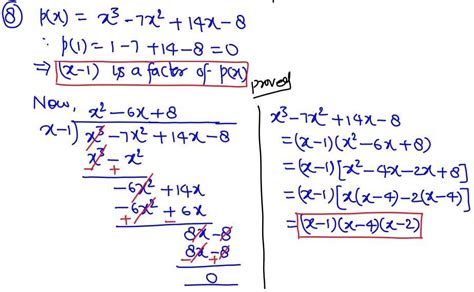 ⑧ p(x) = x³ - 7x² + 14x - 8
∵ p(1) = 1 - 7 + 14 - 8 = 0
⇒ (x-1) is a factor of p(x)
proved
Now,
x² - 6x + 8
x-1) x³ - 7x² + 14x - 8
x³ - x²
- +
-6x² + 14x
-6x² + 6x
+ -
8x - 8
8x - 8
- +
0
x³ - 7x² + 14x - 8
= (x-1)(x² - 6x + 8)
= (x-1)[x² - 4x - 2x + 8]
= (x-1)[x(x-4) - 2(x-4)]
= (x-1)(x-4)(x-2)